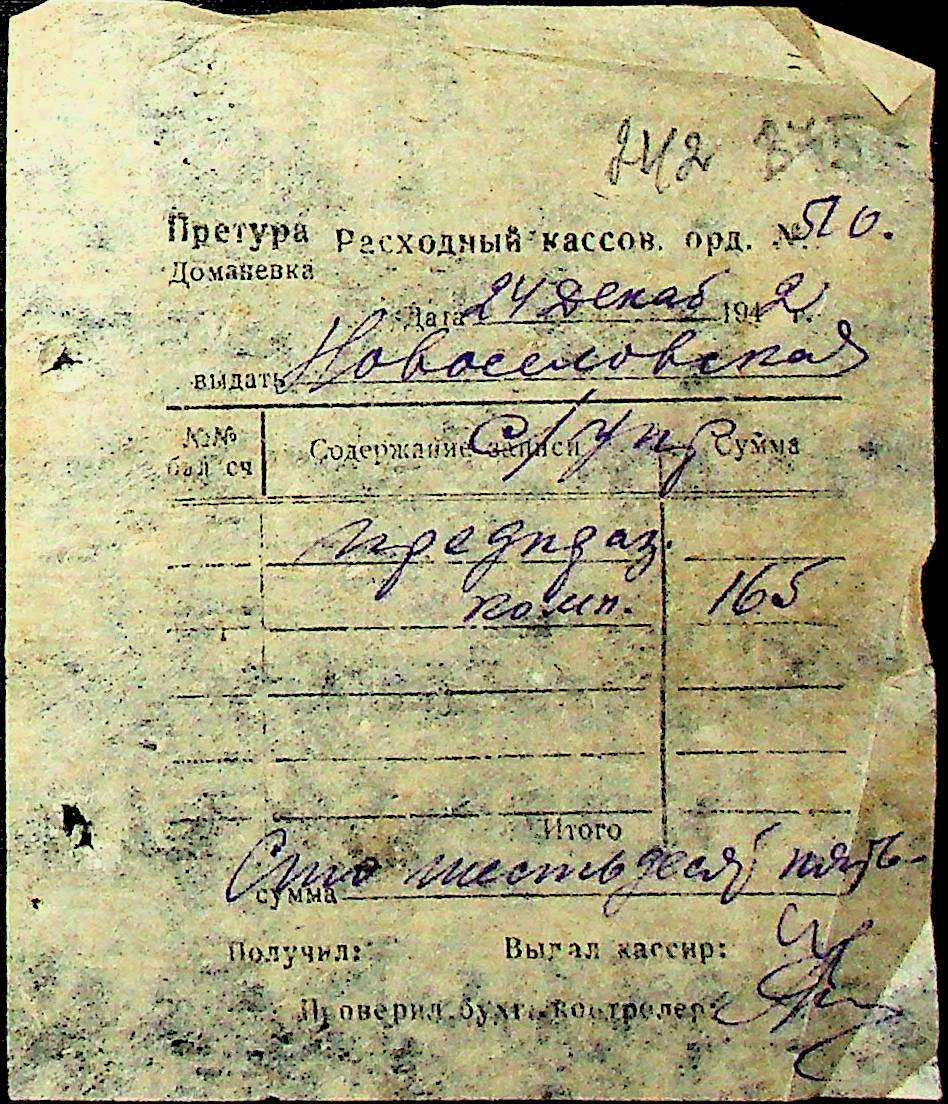 242 375
Претура Расходный кассов. орд. № 510.
Доманевка
Дата 24 Декаб 1942 г.
выдать Новоселовская
с/упр
№№ бал сч Содержание записи Сумма
предпраз.
комп. 165
Итого
сумма Сто шестьдесят пять-
Получил: Выдал кассир:
Проверил бухг. контролер: